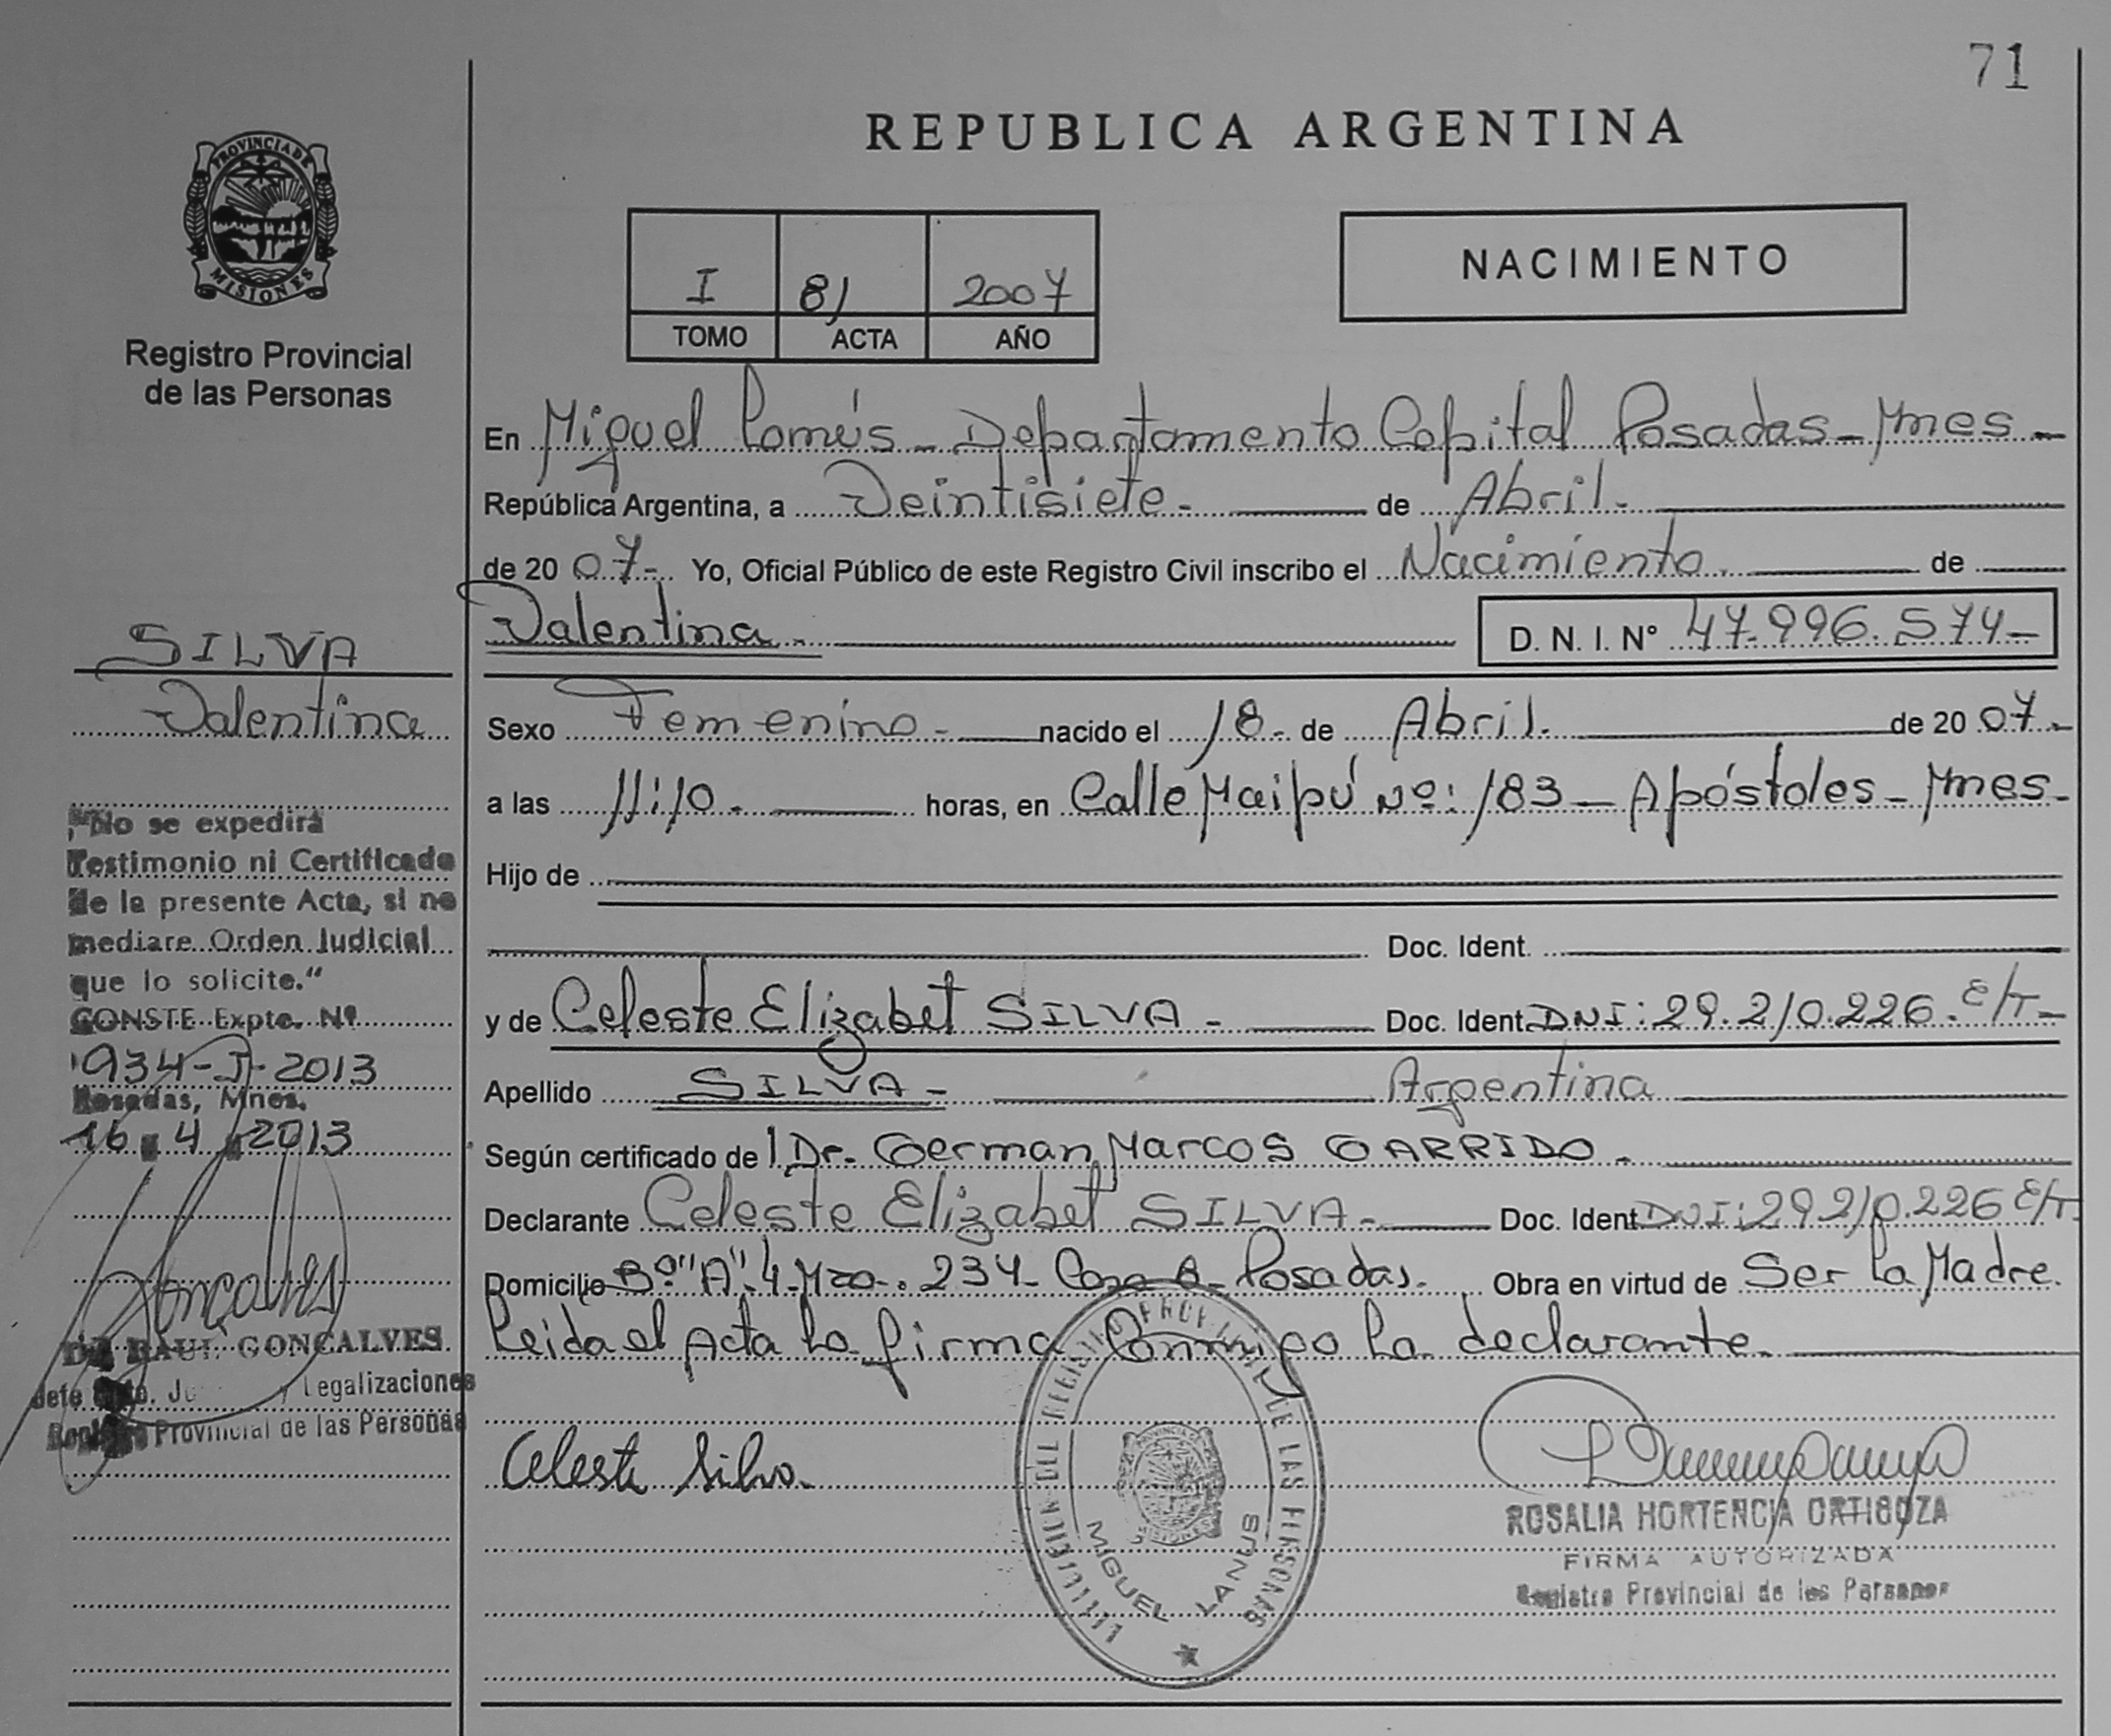 71
REPUBLICA ARGENTINA
PROVINCIA DE
MISIONES
Registro Provincial
de las Personas
I 81 2007
TOMO ACTA AÑO
NACIMIENTO
En Miguel Lanús - Departamento Capital Posadas - Mnes -
República Argentina, a Veintisiete - de Abril -
de 2007 -. Yo, Oficial Público de este Registro Civil inscribo el Nacimiento. de
Valentina - D. N. I. Nº 47.996.574 -
Sexo Femenino - nacido el 18 - de Abril. de 2007 -
a las 11:10 - horas, en Calle Maipú Nº: 183 - Apóstoles - Mnes -
Hijo de
Doc. Ident.
y de Celeste Elizabet SILVA - Doc. Ident. DNI: 29.210.226. E/T -
Apellido SILVA - Argentina
Según certificado del Dr. German Marcos GARRIDO -
Declarante Celeste Elizabet SILVA - Doc. Ident. DNI: 29210.226 E/T.
Domicilio Bº "A" 4 Mza. 234 - Casa 8 - Posadas. Obra en virtud de Ser la Madre.
Leida el Acta la firma Conmigo la declarante.
Celeste Silva.
SILVA
Valentina
"No se expedirá
Testimonio ni Certificado
de la presente Acta, si no
mediare Orden Judicial
que lo solicite."
CONSTE Expte. Nº
1934-J-2013
Posadas, Mnes.
16 4 2013
Goncalves
RAUL GONCALVES
Jefe Dpto. y Legalizaciones
Registro Provincial de las Personas
DEL REGISTRO PROVINCIAL DE LAS PERSONAS
MIGUEL LANUS
ROSALIA HORTENCIA ORTIGOZA
FIRMA AUTORIZADA
Registro Provincial de las Personas